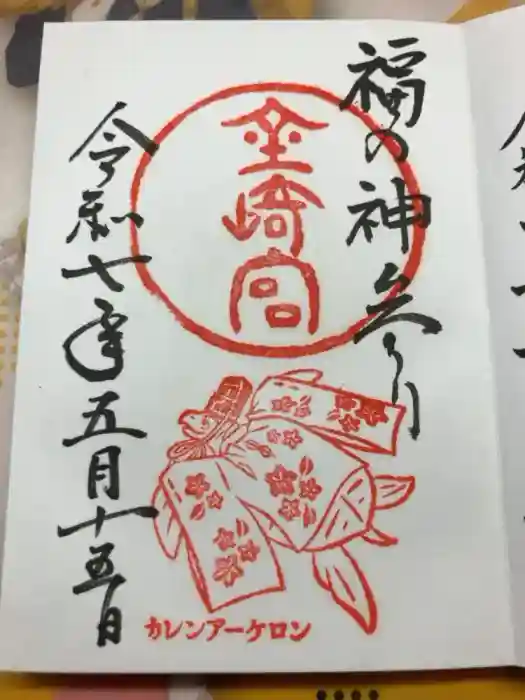 福の神参り
金崎宮
令和七年五月十五日
カレンアーケロン